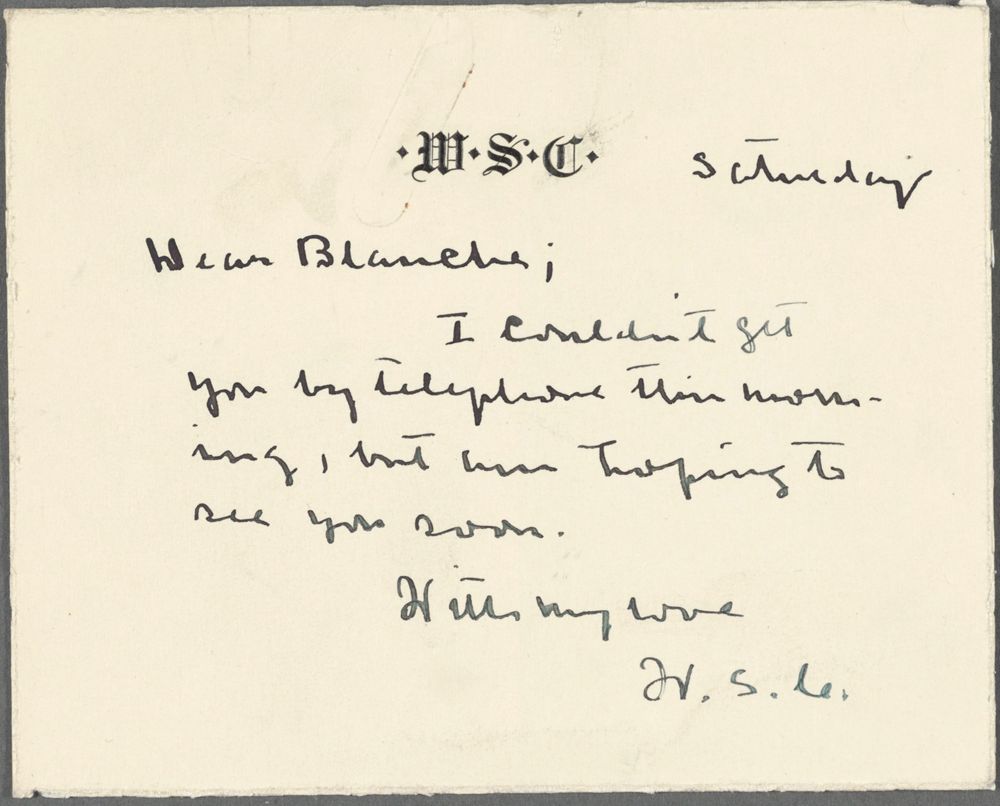 ·W·S·C· Saturday
Dear Blanche;
I couldn't get
you by telephone this morn-
ing, but am hoping to
see you soon.
With my love
W. S. C.